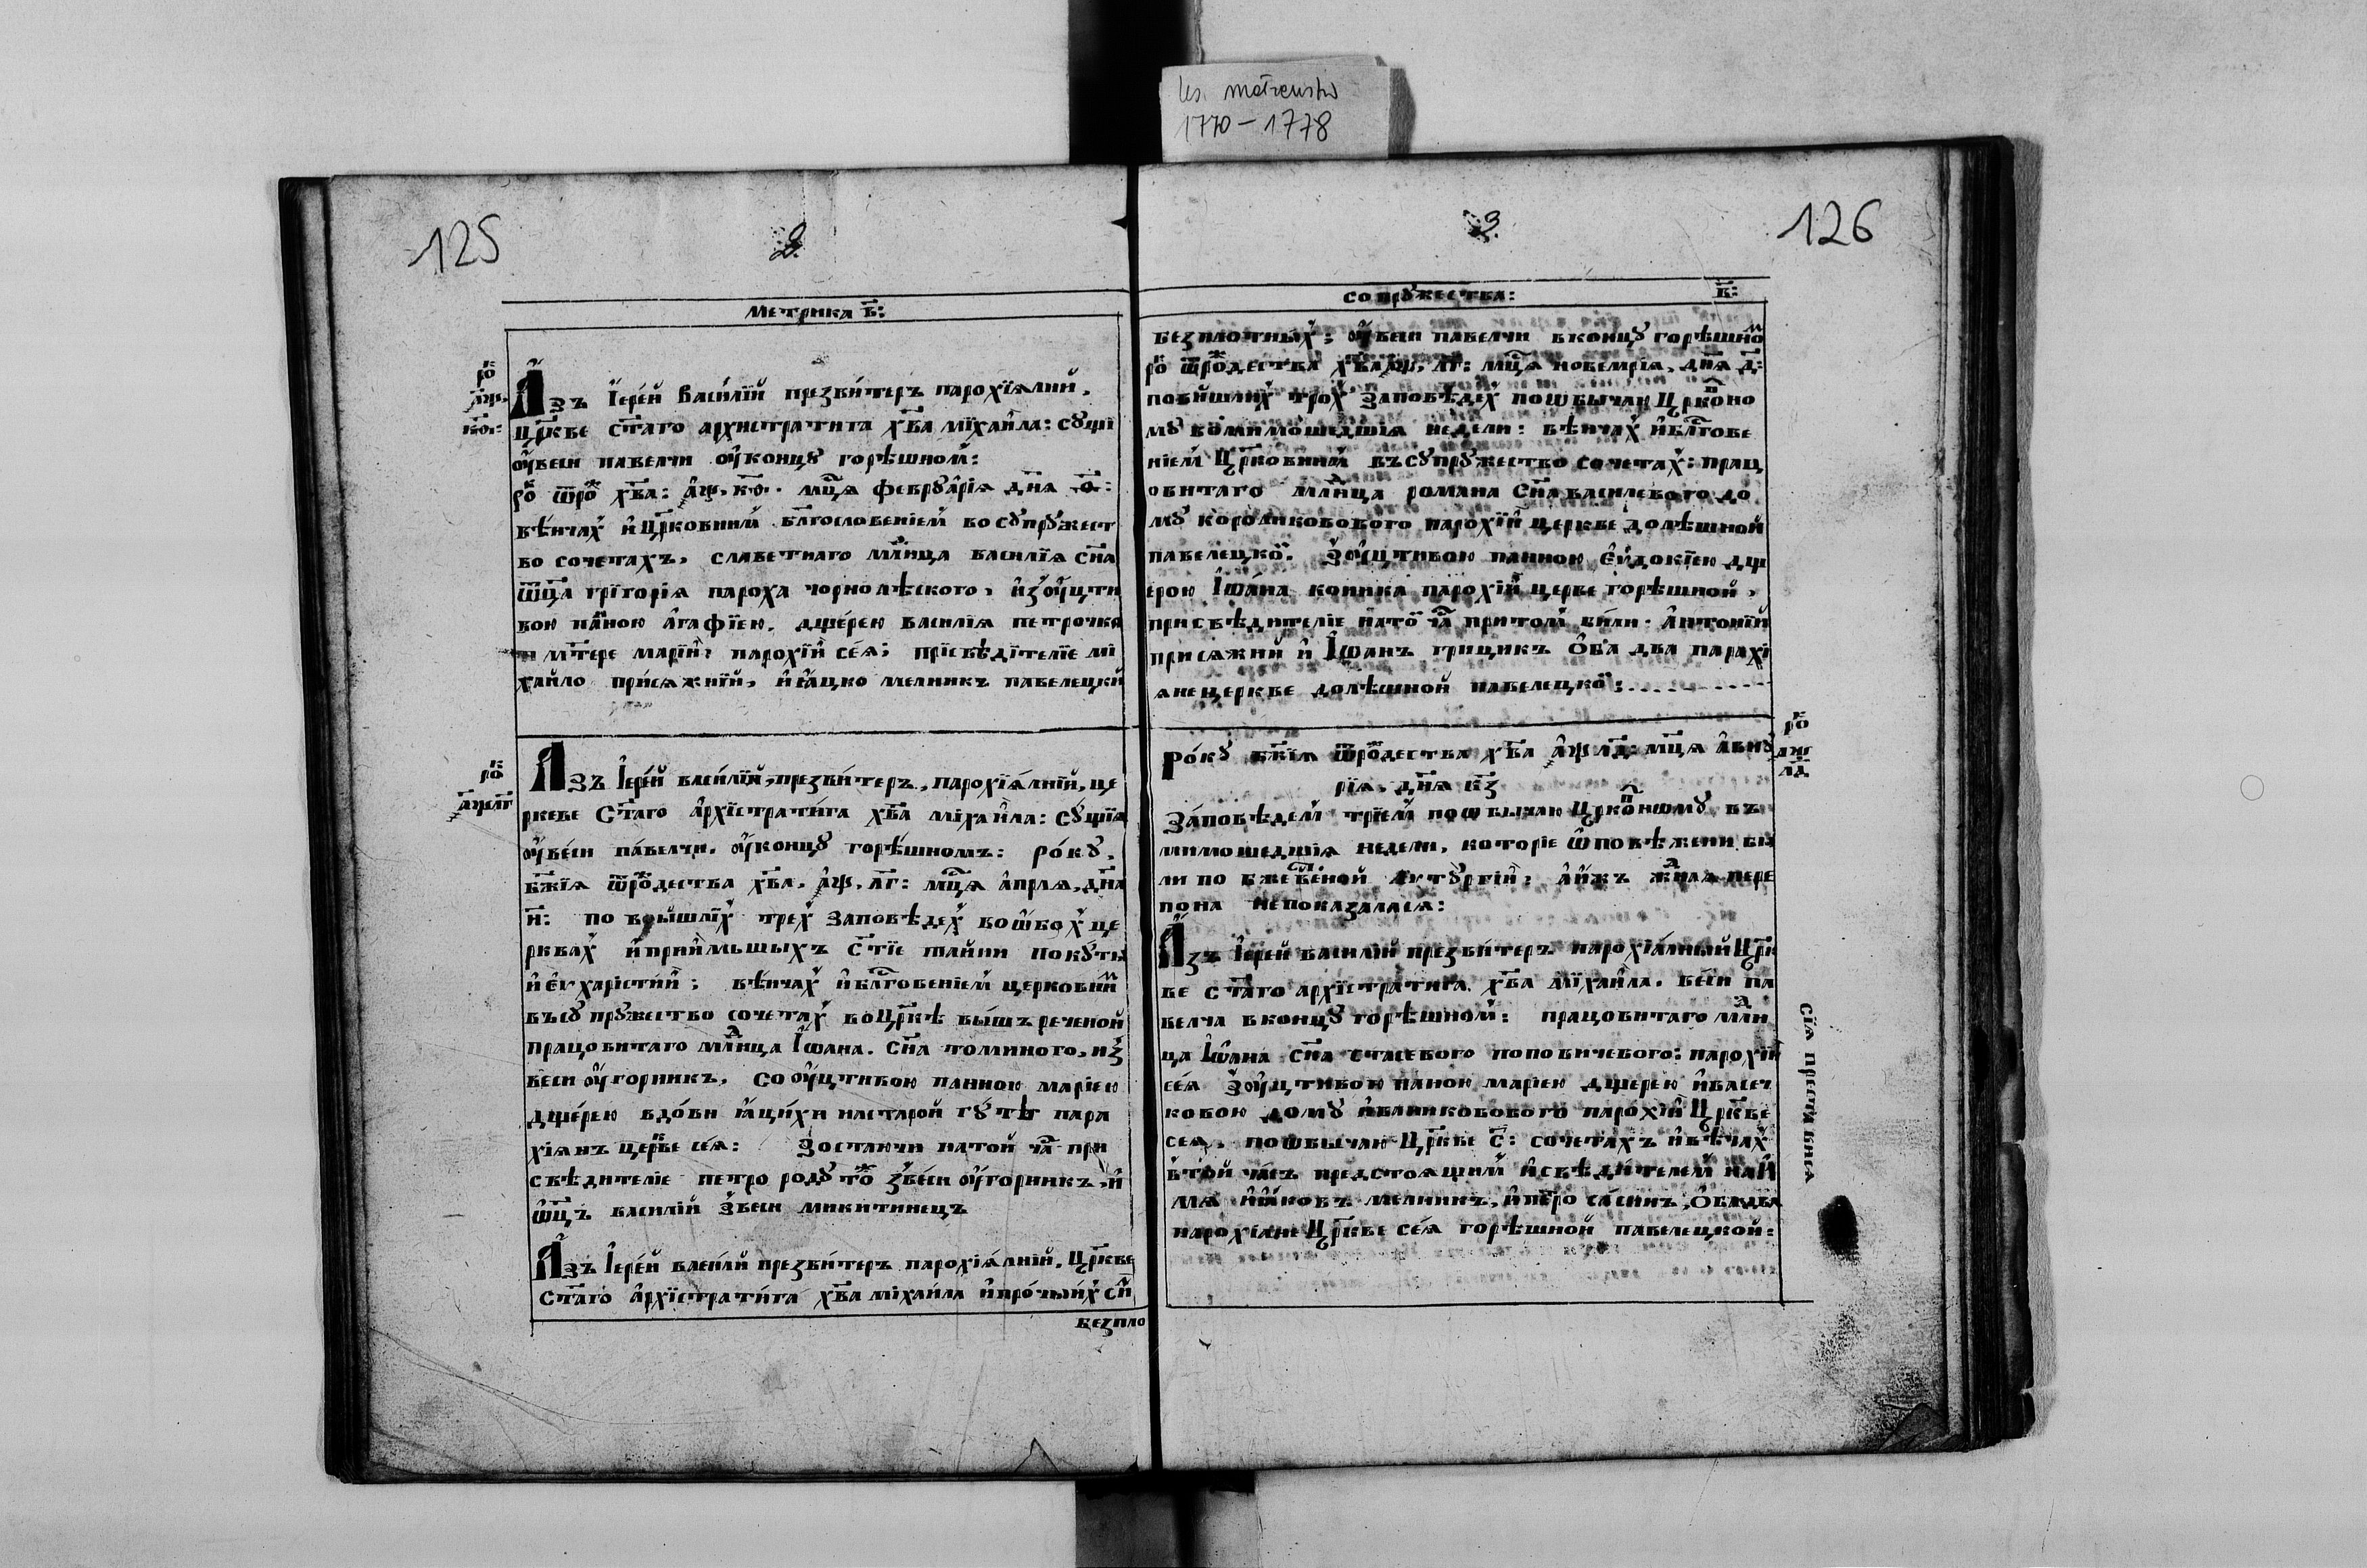 ks. małżeństw
1770-1778
125
2.
Метрика в҃:
ро҃к
аѱ.
кѳ:
Азъ Їерей Василїй презвитеръ парохїялнй,
Цркве ст҃аго архистратига хв҃а мїхаила: сущї
оувеси павелчи оуконцу горѣшном:
ро҃к ѿро҃ж хв҃а: аѱ, кѳ. мц҃а февруарїя дн҃я ѳ҃:
вѣнчах и Црковним бл҃гословенїем восупружест
во сочетахъ, славетнаго мл҃нца василїя сн҃а
ѿц҃а григорїя пароха чорнолѣского, изоуцти
вою панною агафїею. дщерею василїя петрочка
и мт҃ере марїи: парохїи сея; присвѣдїтелїе мї
хайло присяжнїй, и яцко мелникъ павелецки
ро҃к
аѱлг
Азъ Їерей василїй, презвитеръ, парохїялнїй, це
ркве Ст҃аго Архїстратига хв҃а мїхаила: сущїя
оувеси павелчи. оуконцу горѣшномъ: року,
бж҃їя ѿро҃ждества хв҃а, аѱ, лг҃: мц҃я априля, дн҃я
и҃: по вышлїх трех заповѣдех воѡбох це
рквах и приимьшыхъ ст҃їе тайни покути
и еухарістїи; вѣнчах и бл҃говенїем церковним
въсупружество сочетах воЦркѣ вышъ реченой
працовитаго мл҃днца Їѡана. сн҃а томиного, из
веси оугорникъ, со оуцтивою панною марїею
дщерею вдови яцихи настарой гутѣ пара
хїянъ церкве сея: зостаючи натой ча҃ при
свѣдителїе петро роду то҃ж звеси оугорникъ, и
ѿц҃ъ василїй звеси микитинецъ
Азъ Їерей василй презвитеръ парохїялнїй, Цркве
Ст҃аго архїстратига хв҃а міхаила и прочыих си
безпло
126
3.
сопружества:
в҃:
безплотных: оувеси павелчи вконцу горѣшном
ро҃к ѿро҃ждества хв҃а аѱ, лг҃: мц҃я новемрїя, дн҃я д҃:
повишлих трох заповѣдех поѡбычаю Црковно
му вомимошедшїя недели: вѣнчах и бл҃гове
нїем Црковним въсупружество сочетах: прац
овитаго мл҃нца романа сн҃а василевого до
му короликовового парохїи церкве долѣшной
павелецкой. зоуцтивою панною Еудокїею дщ
ерою Їѡана коника парохїи церкве горѣшной,
присвѣдителїе на той ча҃ притом били. антонїй
присяжний и Їѡанъ грицикъ оба два парахї
яне церкве долѣшной павелецкой:
ро҃к
аѱ
лд
Року бж҃їя ѿро҃ждества хв҃а аѱ лд: мц҃я аѵгу
рїя. дн҃я кз
Заповѣдем трїем поѡбычаю Црковному въ
мимошедшїя недели, которїе ѿповѣжени би
ли по бжественой литургїи: аиж жадна пере
пона непоказалася:
Азъ Їерей василїй презвитеръ парохїялный Црк
ве ст҃аго архїстратига хв҃а мїхаила. веси па
велча вконцу горѣшном: працовитаго мл҃дн
ца Їѡана сн҃а стасевого поповичевого: парохїи
сея зоуцтивою паною марїею дщерею ивасеч
ковою дому иваниковового парохїи Цркве
сея, поѡбычаю Цркве с҃: сочетахъ и вѣнчах
втой часъ предстоящим и свѣдителем на и
мя яковъ мелникъ, и петро сасинъ, оба два
парохїяне Цркве сея горѣшной павелецкой:
сїя преставися